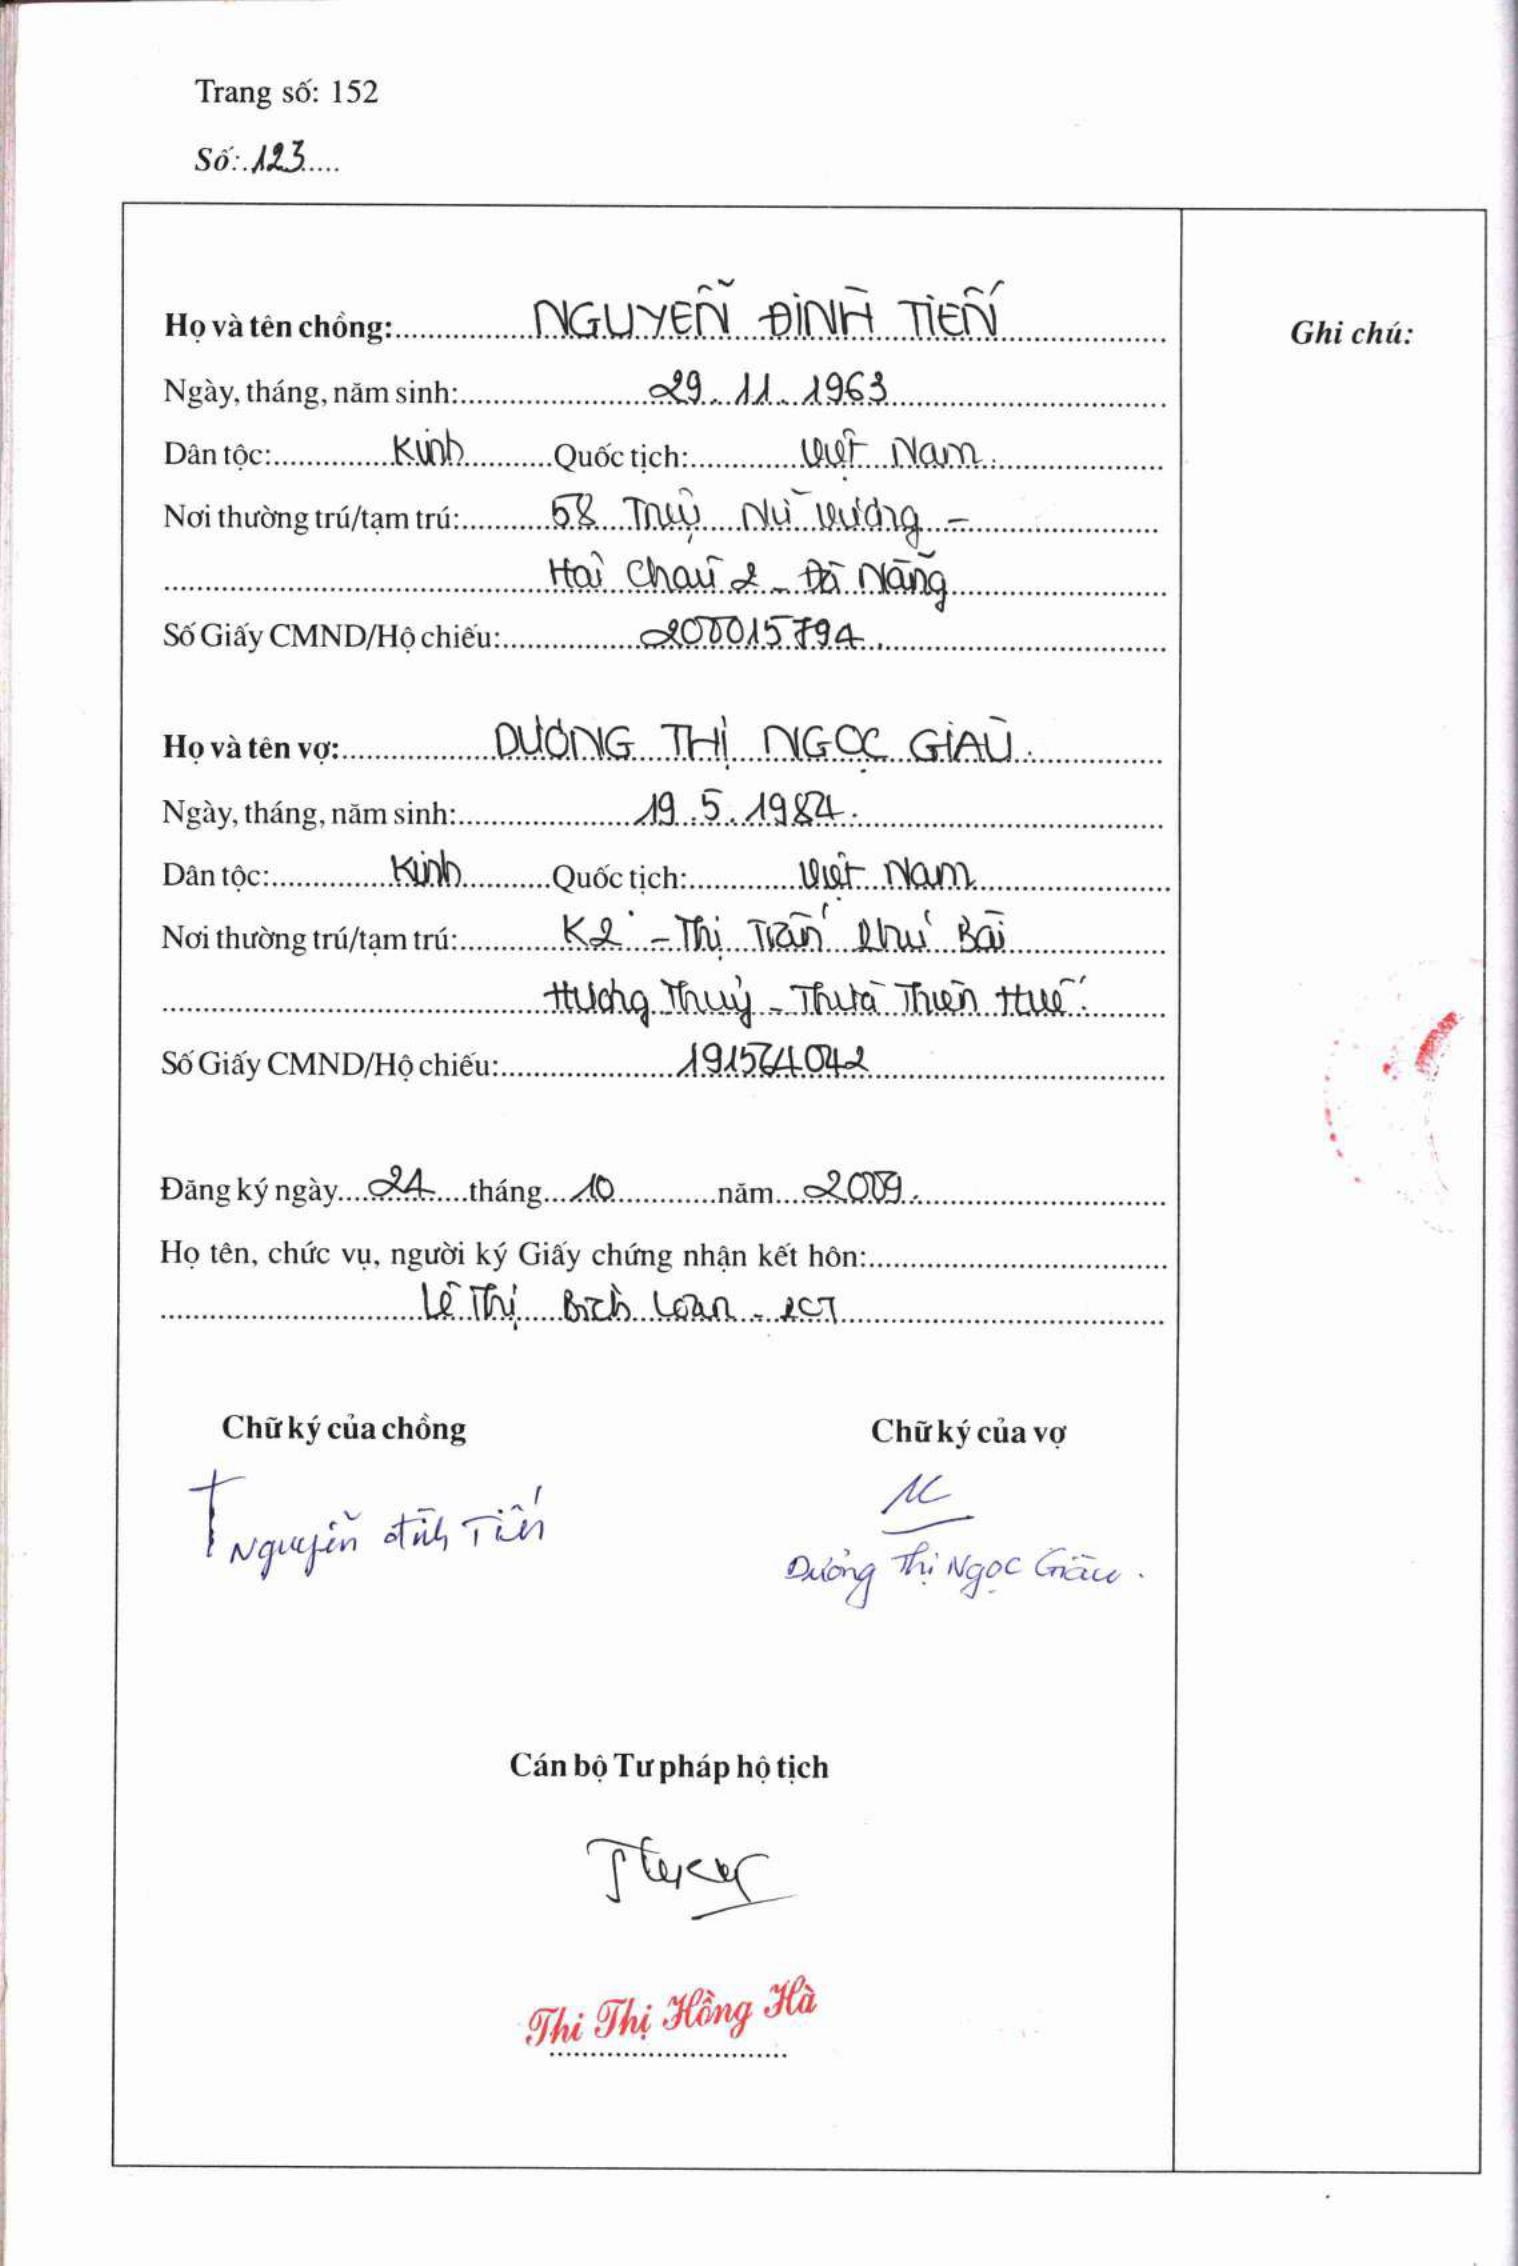 Trang số: 152
Số: 123
Họ và tên chồng: NGUYỄN ĐÌNH TIẾN
Ghi chú:
Ngày, tháng, năm sinh: 29.11.1963
Dân tộc: Kinh Quốc tịch: Việt Nam
Nơi thường trú/tạm trú: 58 Triệu Nữ Vương -
Hải Châu 2 - Đà Nẵng
Số Giấy CMND/Hộ chiếu: 200015794
Họ và tên vợ: DƯƠNG THỊ NGỌC GIÀU
Ngày, tháng, năm sinh: 19.5.1984
Dân tộc: Kinh Quốc tịch: Việt Nam
Nơi thường trú/tạm trú: K2 - Thị Trấn Phú Bài
Hương Thuỷ - Thừa Thiên Huế
Số Giấy CMND/Hộ chiếu: 191564042
Đăng ký ngày 24 tháng 10 năm 2009
Họ tên, chức vụ, người ký Giấy chứng nhận kết hôn:
Lê Thị Bích Loan - PCT
Chữ ký của chồng
Chữ ký của vợ
Nguyễn Đình Tiến
Dương Thị Ngọc Giàu.
Cán bộ Tư pháp hộ tịch
Thi Thị Hồng Hà